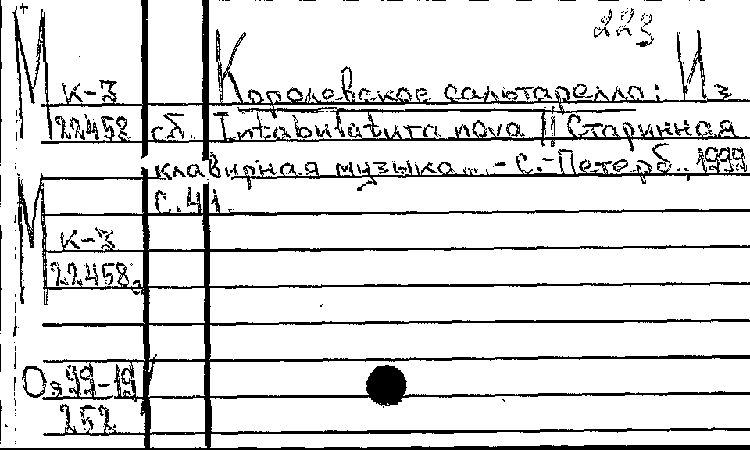 223
Королевское сальтарелло: Из
М к-3
22458 сб. Intabulatura nova || Старинная
клавирная музыка... - С.-Петерб., 1999
С. 41.
М к-3
22458а
Оэ 99-19
252